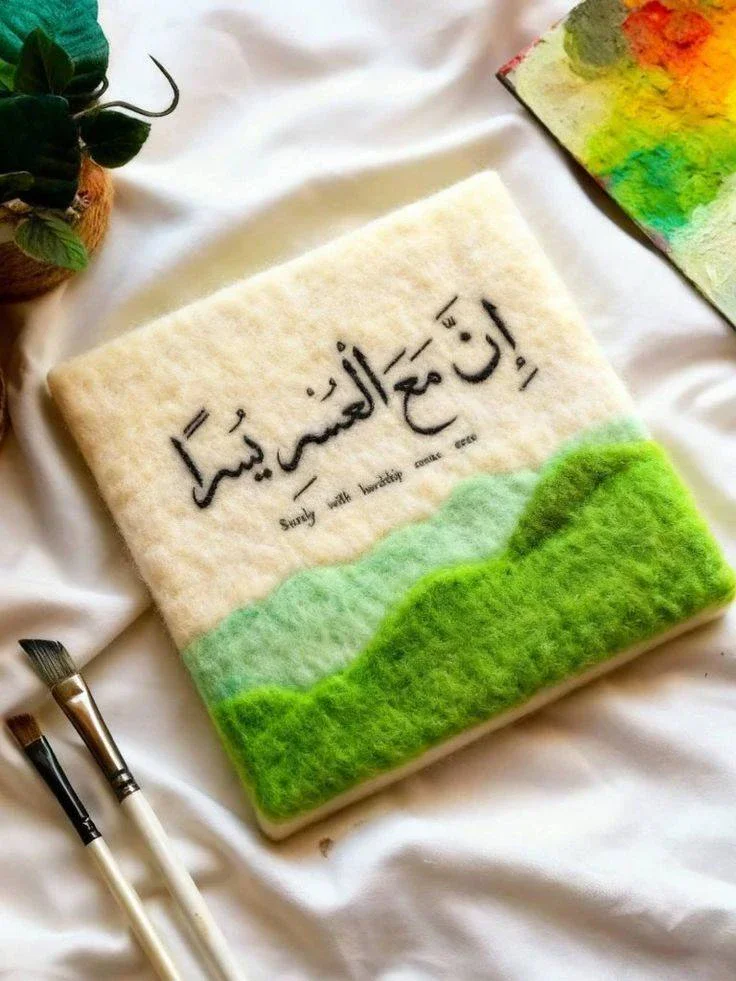 إِنَّ مَعَ العُسْرِ يُسراً
Surely with hardship comes ease